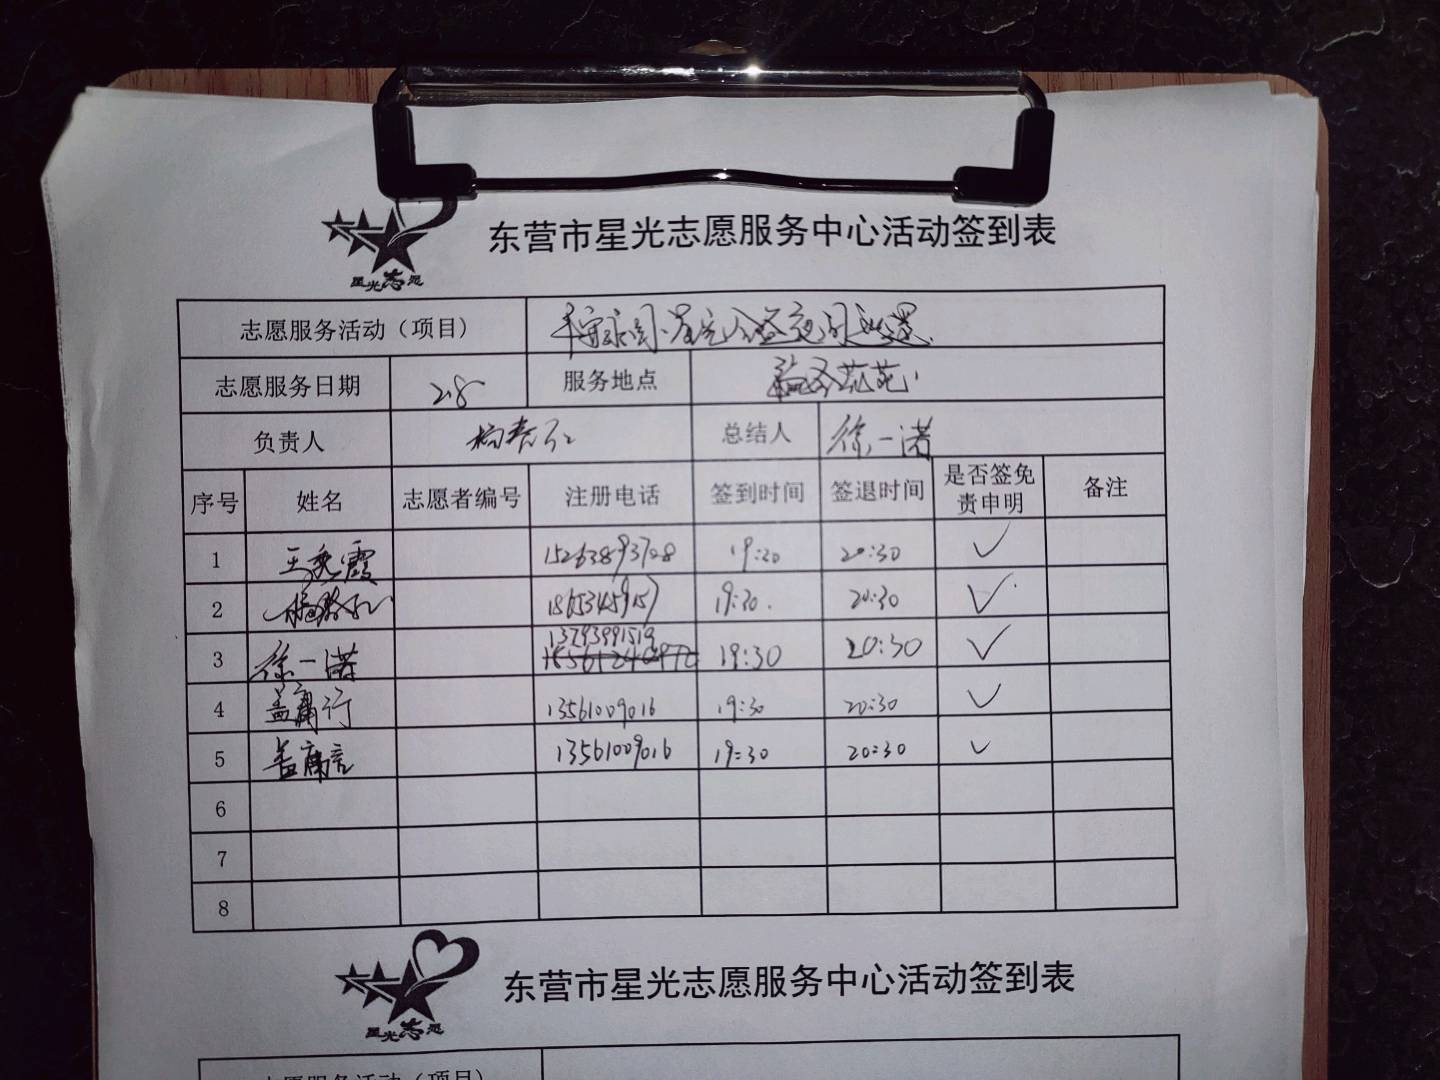 东营市星光志愿服务中心活动签到表
星光志愿
志愿服务活动（项目）
志愿服务日期 2.8 服务地点
负责人 总结人 徐一诺
序号 姓名 志愿者编号 注册电话 签到时间 签退时间 是否签免责申明 备注
1 霞 15263893728 19:30 20:30 ✓
2 18653459157 19:30. 20:30 ✓
3 徐一诺 13793991519 19:30 20:30 ✓
4 行 13561009016 19:30 20:30 ✓
5 言 13561009016 19:30 20:30 ✓
6
7
8
东营市星光志愿服务中心活动签到表
星光志愿
志愿服务活动（项目）